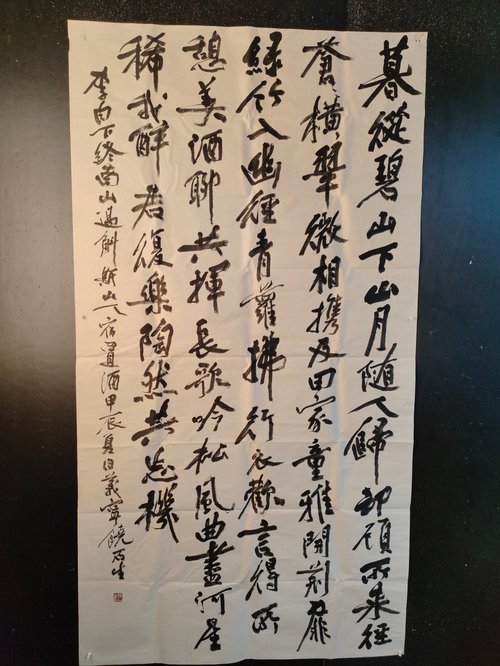 暮從碧山下山月随人歸卻顧所來徑
蒼〻橫翠微相携及田家童稚開荊扉
綠竹入幽徑青蘿拂行衣歡言得所
憩美酒聊共揮長歌吟松風曲盡河星
稀我醉君復樂陶然共忘機
李白下終南山過斛斯山人宿置酒甲辰夏日義寧饒石生